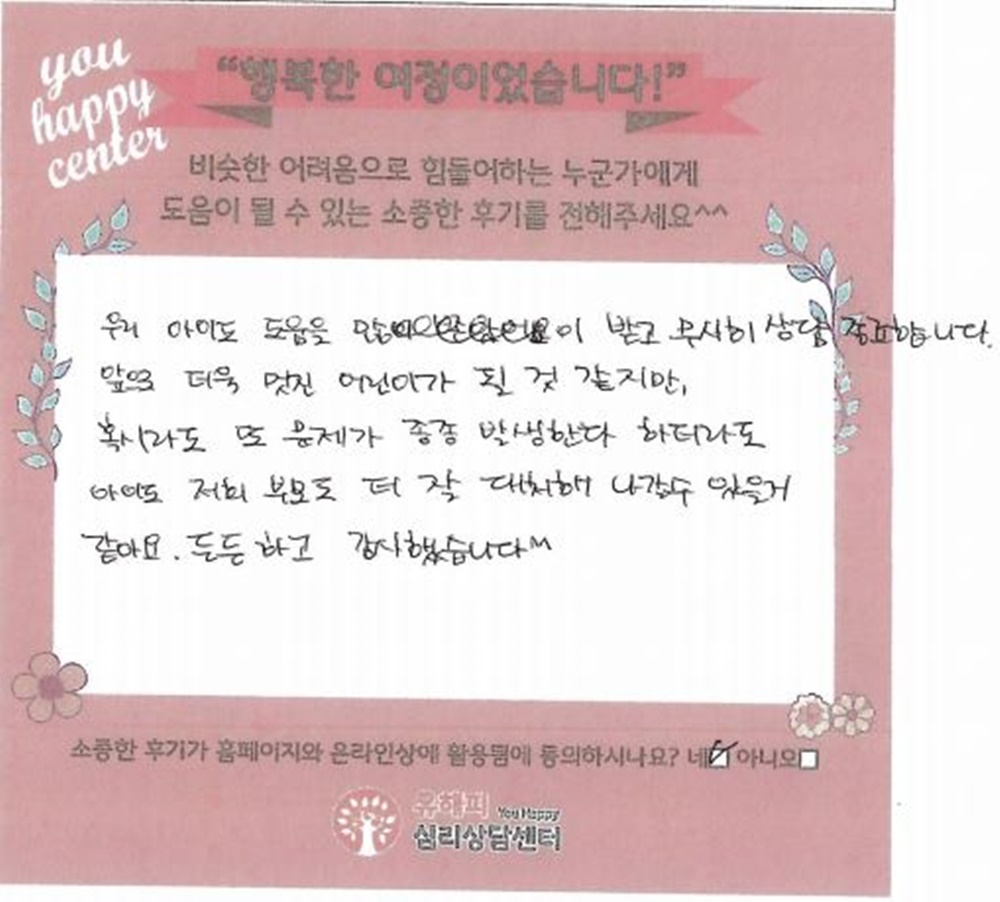 you
happy
center
“행복한 여정이었습니다!”
비슷한 어려움으로 힘들어하는 누군가에게
도움이 될 수 있는 소중한 후기를 전해주세요^^
우리 아이도 도움을 많이 받고 무사히 상담 종료합니다.
앞으로 더욱 멋진 어린이가 될 것 같지만,
혹시라도 또 문제가 종종 발생한다 하더라도
아이도 저희 부모도 더 잘 대처해 나갈수 있을거
같아요. 든든하고 감사했습니다^^
소중한 후기가 홈페이지와 온라인상에 활용됨에 동의하시나요? 네 아니오
유해피 You Happy
심리상담센터